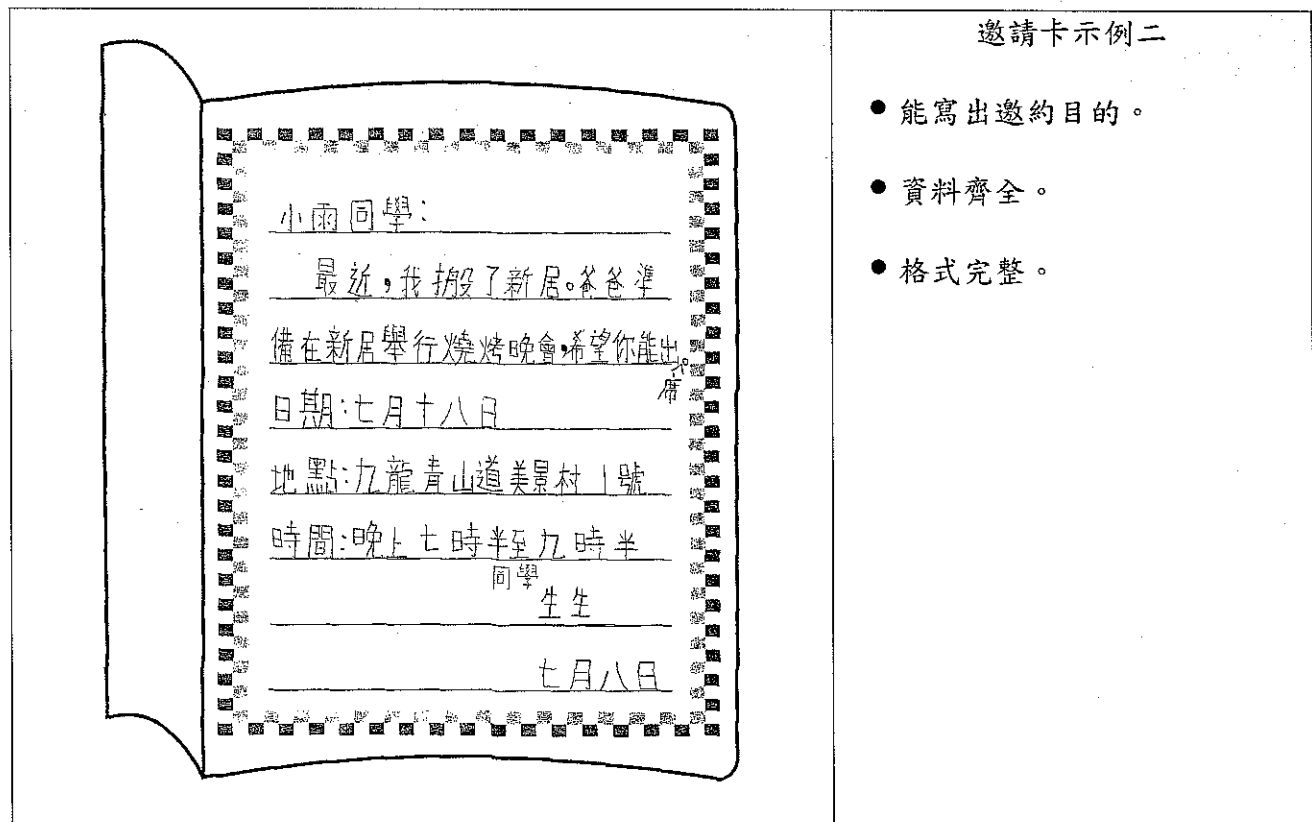 小雨同學：
最近，我搬了新居。爸爸準
備在新居舉行燒烤晚會，希望你能出
席。
日期：七月十八日
地點：九龍青山道美景村 1號
時間：晚上七時半至九時半
同學
生生
七月八日
邀請卡示例二
● 能寫出邀約目的。
● 資料齊全。
● 格式完整。